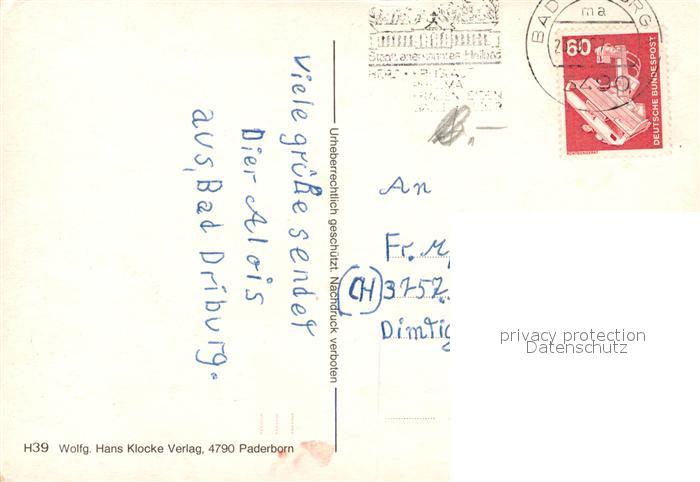 Viele grüße sendet
Dier Alois
aus, Bad Driburg.
Urheberrechtlich geschützt. Nachdruck verboten
H39 Wolfg. Hans Klocke Verlag, 4790 Paderborn
Staatl. anerkanntes Heilbad
BAD
ma
3490
60
DEUTSCHE BUNDESPOST
RÖNTGENGERÄT
An
Fr.
(CH) 3757
Dimtig
privacy protection
Datenschutz